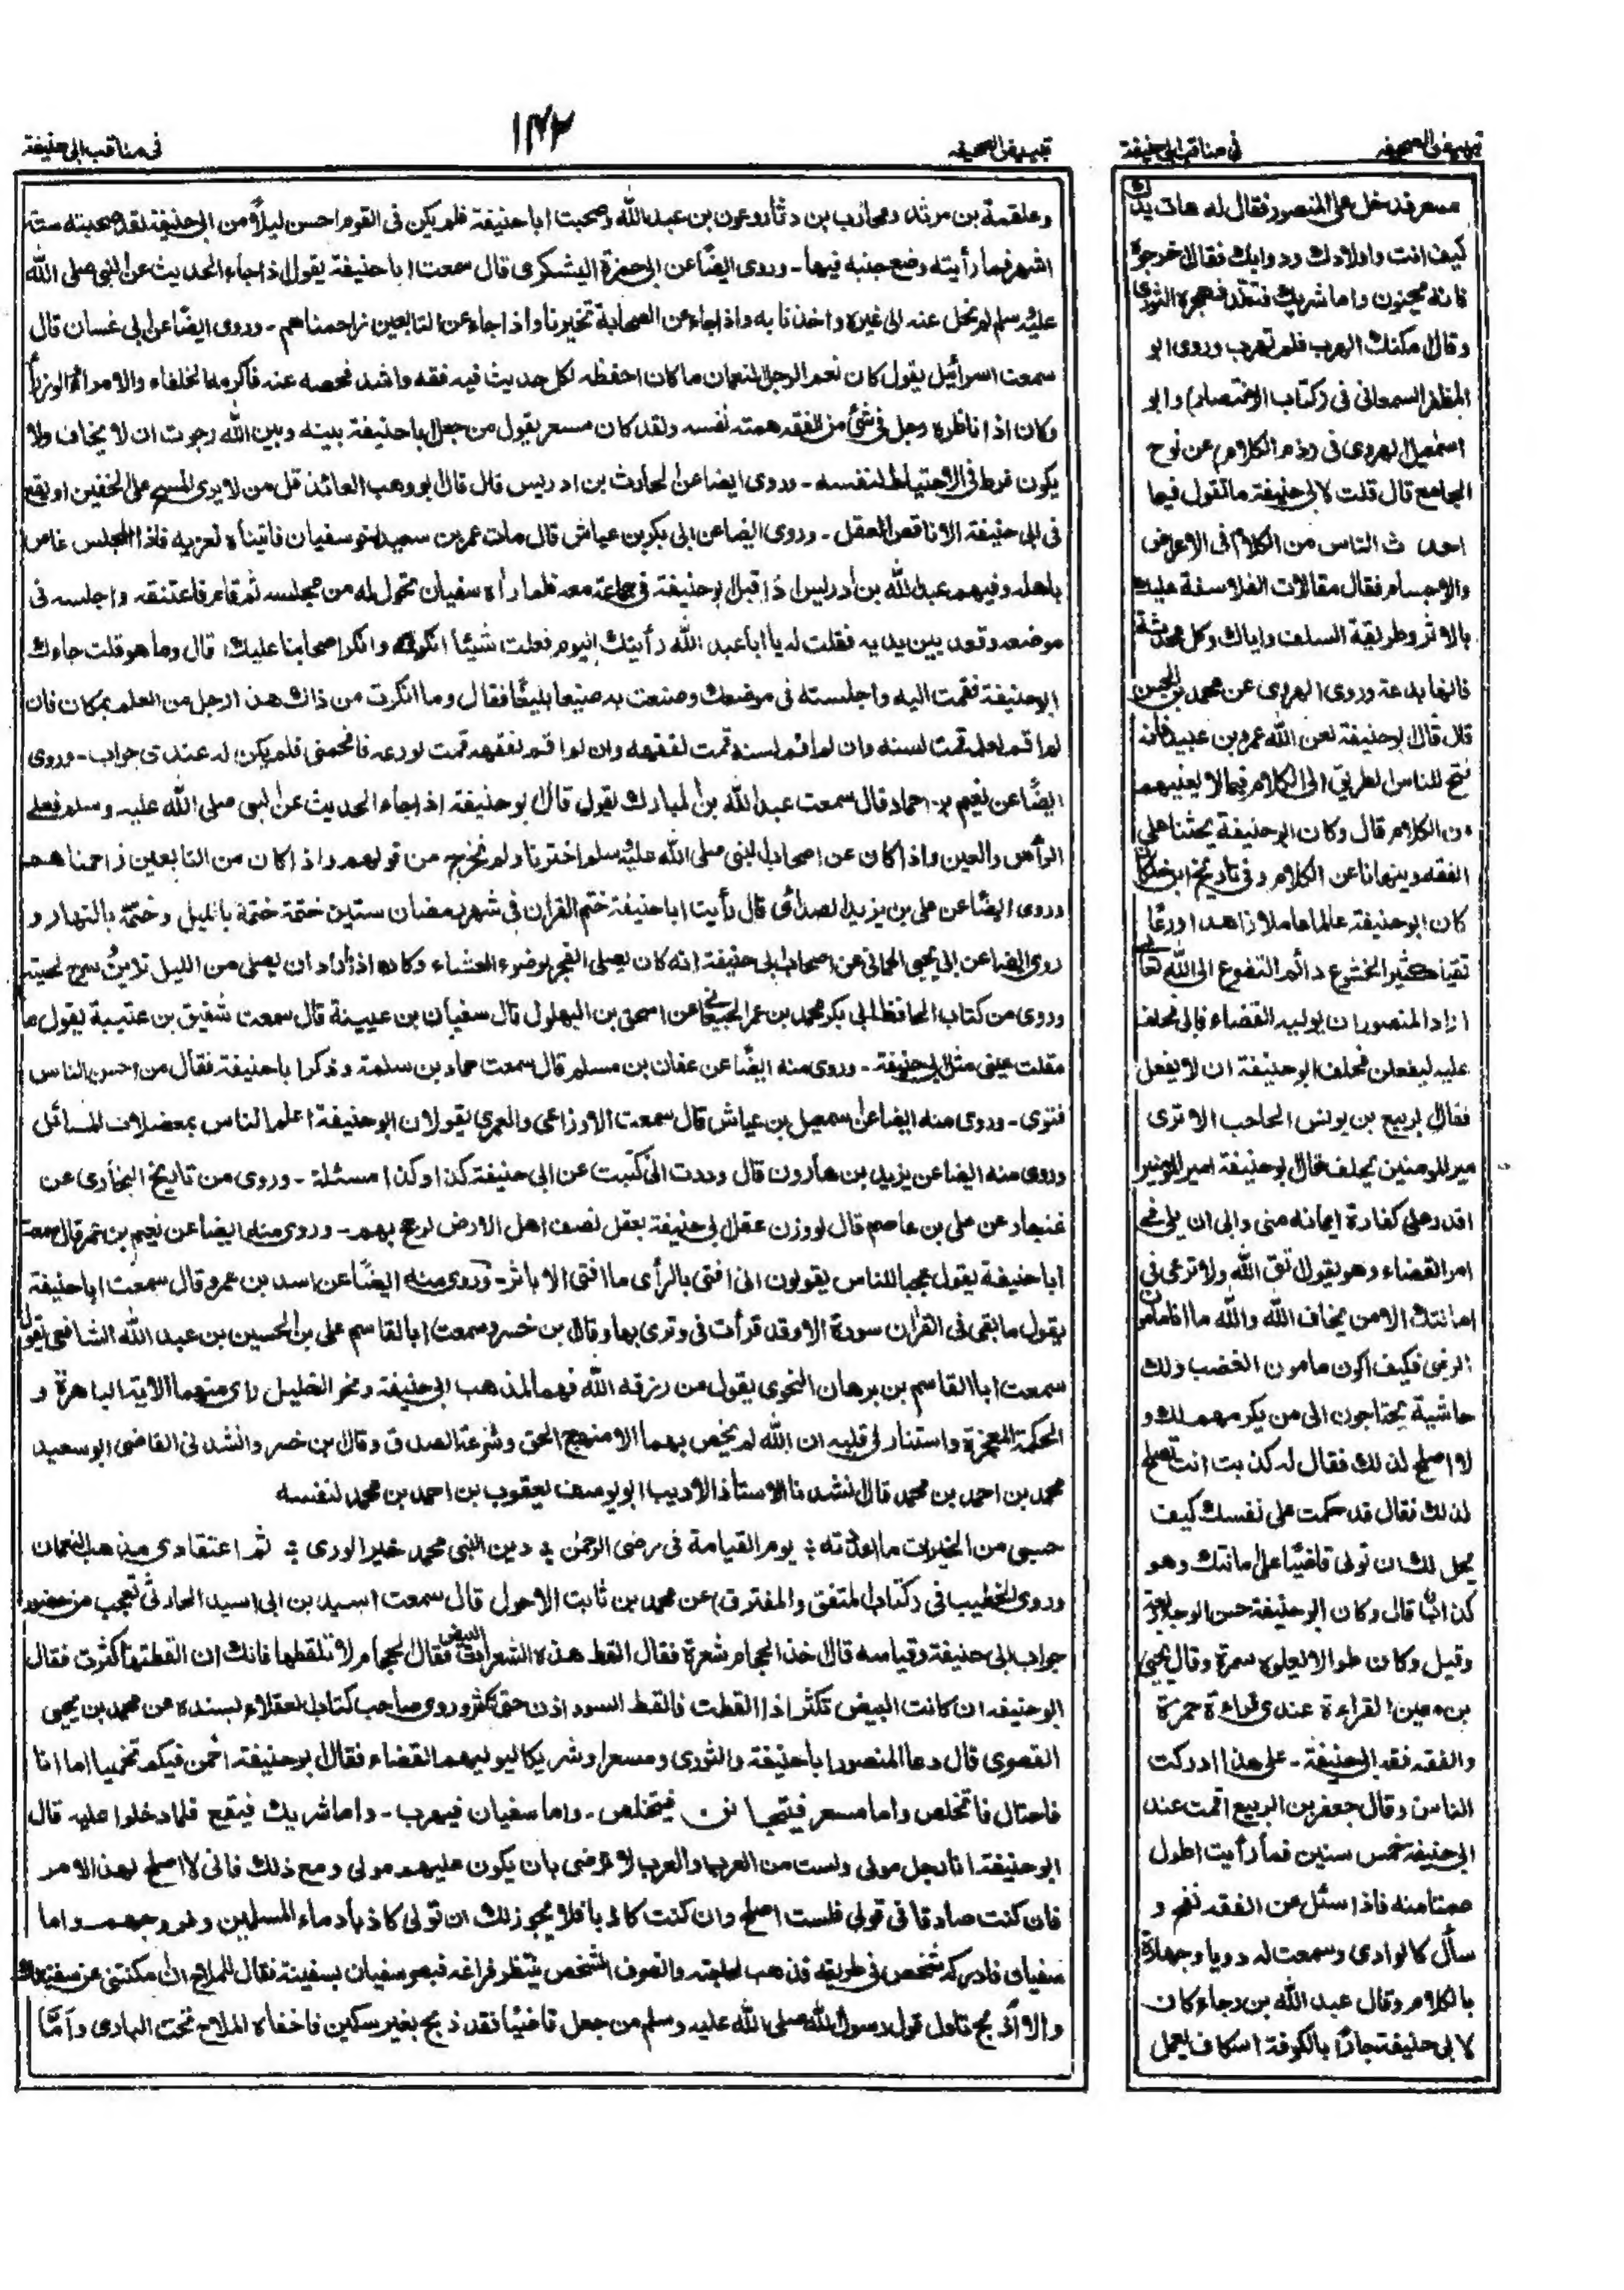 تبييض الصحيفه ١٤٣ فى مناقب ابى حنيفة
وعلقمة بن مرثد ومحارب بن دثار وعون بن عبد الله وصحبت ابا حنيفة فلم يكن فى القوم احسن ليلاً من ابى حنيفة لقد صحبته ستة
اشهر فما رأيته وضع جنبه فيها ـ وروى ايضًا عن ابى حمزة اليشكرى قال سمعت ابا حنيفة يقول اذا جاء الحديث عن النبى صلى الله
عليه وسلم لم نحل عنه الى غيره واخذنا به واذا جاء عن الصحابة تخيرنا واذا جاء عن التابعين زاحمناهم ـ وروى ايضًا عن ابى غسان قال
سمعت اسرائيل يقول كان نعم الرجل النعمان ما كان احفظه لكل حديث فيه فقه واشد فحصه عنه فاكرمه الخلفاء والامراء والوزراء
وكان اذا ناظره رجل فى شئ من الفقه همته نفسه ولقد كان مسعر يقول من جعل ابا حنيفة بينه وبين الله رجوت ان لا يخاف ولا
يكون فرط فى الاحتياط لنفسه ـ وروى ايضا عن الحارث بن ادريس قال قال ابو وهب العائذ قل من لا يرى المسح على الخفين او يقع
فى ابى حنيفة الا ناقص العقل ـ وروى ايضا عن ابى بكر بن عياش قال مات عمر بن سعيد اخو سفيان فاتيناه نعزيه فاذا المجلس غاص
باهله وفيهم عبد الله بن ادريس اذ اقبل ابو حنيفة فى جماعة معه فلما رأه سفيان تحول له من مجلسه ثم قام فاعتنقه واجلسه فى
موضعه وقعد بين يديه فقلت له يا ابا عبد الله رأيتك اليوم فعلت شيئا انكرته وانكر اصحابنا عليك قال وما هو قلت جاءك
ابو حنيفة فقمت اليه واجلسته فى موضعك وصنعت به صنيعا بليغًا فقال وما انكرت من ذاك هذا رجل من العلم بمكان فان
لم اقم لعلمه قمت لسنه وان لم اقم لسنه قمت لفقهه وان لم اقم لفقهه قمت لورعه فافحمنى فلم يكن له عندى جواب ـ وروى
ايضًا عن نعيم بن حماد قال سمعت عبد الله بن المبارك يقول قال ابو حنيفة اذا جاء الحديث عن النبى صلى الله عليه وسلم فعلى
الرأس والعين واذا كان عن اصحاب النبى صلى الله عليه وسلم اخترنا ولم نخرج من قولهم واذا كان من التابعين زاحمناهم
وروى ايضًا عن على بن يزيد الصدائى قال رأيت ابا حنيفة ختم القران فى شهر رمضان ستين ختمة ختمة بالليل وختمة بالنهار و
روى ايضا عن ابى يحيى الحمانى عن اصحاب ابى حنيفة انه كان يصلى الفجر بوضوء العشاء وكان اذا أراد ان يصلى من الليل تزين وسرح لحيته
وروى من كتاب الحافظ ابى بكر محمد بن عمر الجعابى عن اسحق بن البهلول قال سفيان بن عيينة قال سمعت شقيق بن عتيبة يقول ما
مقلت عينى مثل ابى حنيفة ـ وروى منه ايضًا عن عفان بن مسلم قال سمعت حماد بن سلمة وذكر ابا حنيفة فقال من احسن الناس
فتوى ـ وروى منه ايضا عن اسمعيل بن عياش قال سمعت الاوزاعى والعمرى يقولان ابو حنيفة اعلم الناس بمعضلات المسائل
وروى منه ايضا عن يزيد بن هارون قال وددت انى كتبت عن ابى حنيفة كذا وكذا مسئلة ـ وروى من تاريخ البخارى عن
غنجار عن على بن عاصم قال لو وزن عقل ابى حنيفة بعقل نصف اهل الارض لرجح بهم ـ وروى منه ايضا عن نعيم بن عمر قال سمعت
ابا حنيفة يقول عجبا للناس يقولون انى افتى بالرأى ما افتى الا باثر ـ وروى منه ايضًا عن اسد بن عمرو قال سمعت ابا حنيفة
يقول ما بقى فى القران سورة الا وقد قرأت فى وترى بها وقال بن خسرو سمعت ابا القاسم على بن الحسين بن عبد الله الشافعى يقول
سمعت ابا القاسم بن برهان النحوى يقول من رزقه الله فهما لمذهب ابى حنيفة ونحو الخليل راى منهما الاية الباهرة و
الحكمة المعجزة واستنار فى قلبه ان الله لم يخص بهما الا منهج الحق وشرعة الصدق وقال بن خسرو انشدنى القاضى ابو سعيد
محمد بن احمد بن محمد قال انشدنا الاستاذ الاديب ابو يوسف يعقوب بن احمد بن محمد لنفسه
حسبى من الخيرات ما اعددته ؛ يوم القيامة فى رضى الرحمٰن ؛ دين النبى محمد خير الورى ؛ ثم اعتقادى مذهب النعمان
وروى الخطيب فى (كتاب المتفق والمفترق) عن محمد بن ثابت الاحول قال سمعت اسيد بن ابى اسيد الحارثى تعجب من حضور
جواب ابى حنيفة وقياسه قال اخذ الحجام شعرة فقال القط هذه الشعرات البيض فقال الحجام لا تلقطها فانك ان القطتها كثرت فقال
ابو حنيفه ان كانت البيض تكثر اذا القطت فالقط السود اذن حتى تكثر وروى صاحب كتاب العقلاء بسنده عن محمد بن يحيى
القصوى قال دعا المنصور ابا حنيفة والثورى ومسعرا وشريكا ليوليهم القضاء فقال ابو حنيفة اخمن فيكم تخمينا اما انا
فاحتال فاتخلص واما مسعر فيتجانن فيتخلص ـ واما سفيان فيهرب ـ واما شريك فيقع فلما دخلوا عليه قال
ابو حنيفة انا رجل مولى ولست من العرب والعرب لا ترضى بان يكون عليهم مولى ومع ذلك فانى لا اصلح لهذا الامر
فان كنت صادقا فى قولى فلست اصلح وان كنت كاذبا فلا يجوز لك ان تولى كاذبا دماء المسلمين وفروجهم واما
سفيان فادركه شخص فى طريقه فذهب لحاجته وانصرف الشخص ينتظر فراغه فبصر سفيان بسفينة فقال للملاح ان مكنتنى من سفينتك
والا اذبح فتاول قول رسول الله صلى الله عليه وسلم من جعل قاضيًا فقد ذبح بغير سكين فاخفاه الملاح تحت البادى وأمّا
تبييض الصحيفه فى مناقب ابى حنيفة
مسعر فدخل على المنصور فقال له هات يدك
كيف انت واولادك ودوابك فقال اخرجوه
فانه مجنون واما شريك فتقلد فهجره الثورى
وقال مكنك الهرب فلم تهرب وروى ابو
المظفر السمعانى فى (كتاب الانتصار) وابو
اسمٰعيل الهروى فى (ذم الكلام) عن نوح
الجامع قال قلت لابى حنيفة ما تقول فيما
احدث الناس من الكلام فى الاعراض
والاجسام فقال مقالات الفلاسفة عليك
بالاثر وطريقة السلف واياك وكل محدثة
فانها بدعة وروى الهروى عن محمد بن الحسن
قال قال ابو حنيفة لعن الله عمرو بن عبيد فانه
فتح للناس الطريق الى الكلام فيما لا يعنيهم
من الكلام قال وكان ابو حنيفة يحثنا على
الفقه وينهانا عن الكلام وفى تاريخ ابن خلكان
كان ابو حنيفة عالما عاملا زاهدا ورعًا
تقيا كثير الخشوع دائم التضرع الى الله تعالى
اراد المنصور ان يوليه القضاء فابى فحلف
عليه ليفعلن فحلف ابو حنيفة ان لا يفعل
فقال الربيع بن يونس الحاجب الا ترى
امير المومنين يحلف فقال ابو حنيفة امير المومنين
اقدر على كفارة ايمانه منى وابى ان يلى فى
امر القضاء وهو يقول اتق الله ولا ترعى فى
امانتك الا من يخاف الله والله ما انا مامون
الرضى فكيف اكون مامون الغضب ولك
حاشية يحتاجون الى من يكرمهم لك و
لا اصلح لذلك فقال له كذبت انت تصلح
لذلك فقال قد حكمت على نفسك كيف
يحل لك ان تولى قاضيًا على امانتك وهو
كذاب قال وكان ابو حنيفة حسن الوجه
وقيل وكان طوالا يعلوه سمرة وقال يحيى
بن معين القراءة عندى قراءة حمزة
والفقه فقه ابى حنيفة ـ على هذا ادركت
الناس وقال جعفر بن الربيع اقمت عند
ابى حنيفة خمس سنين فما رأيت اطول
صمتا منه فاذا سئل عن الفقه تفتح و
سال كالوادى وسمعت له دويا وجهارة
بالكلام وقال عبد الله بن رجاء كان
لابى حنيفة جار بالكوفة اسكاف يعمل